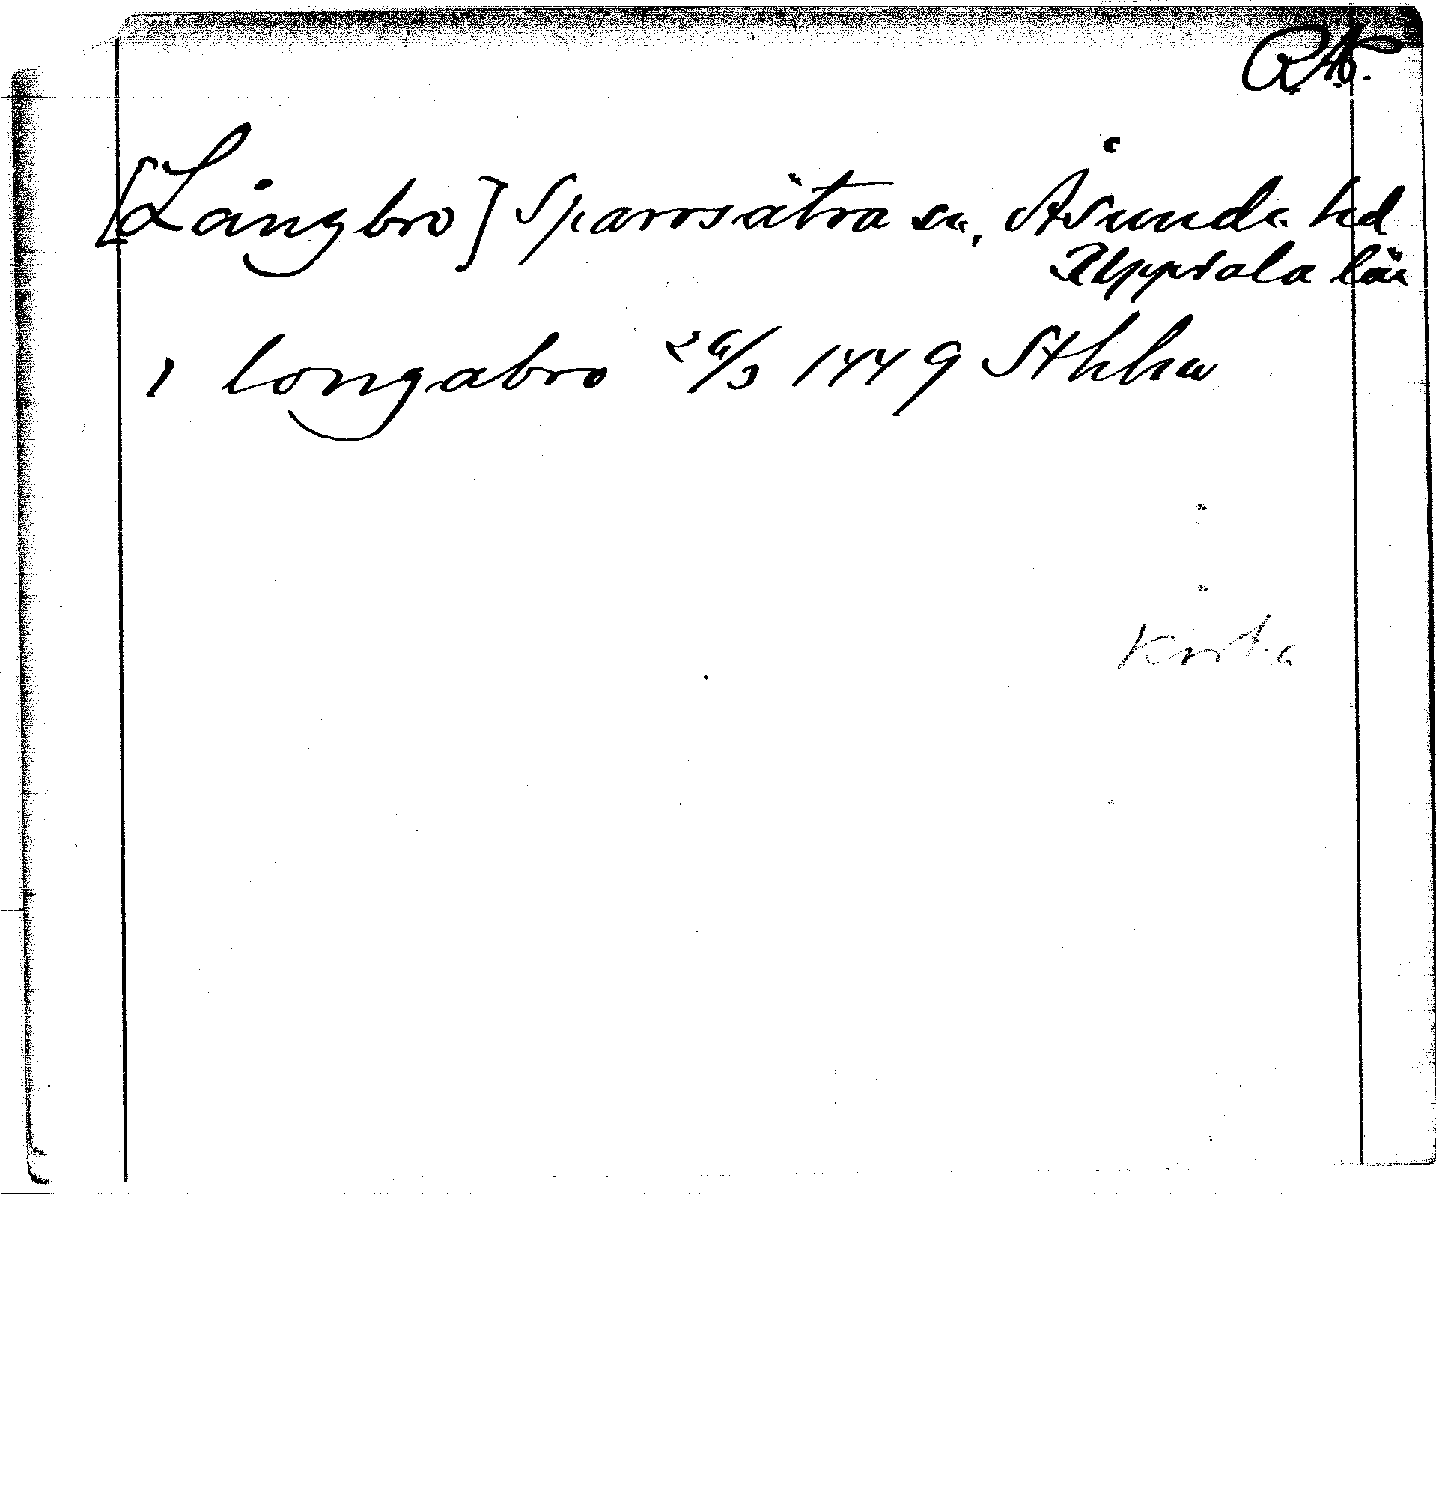 RA.
[Långbro] Sparrsätra sn, Åsunda hd
Uppsala län
i longabro 26/3 1449 Sthhm